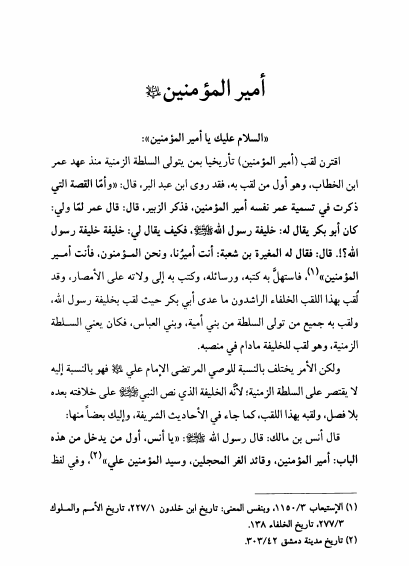 أمير المؤمنين ﷺ
«السلام عليك يا أمير المؤمنين»:
اقترن لقب (أمير المؤمنين) تأريخيا بمن يتولى السلطة الزمنية منذ عهد عمر
ابن الخطاب، وهو أول من لقب به، فقد روى ابن عبد البر، قال: «وأمّا القصة التي
ذكرت في تسمية عمر نفسه أمير المؤمنين، فذكر الزبير، قال: قال عمر لمّا ولي:
كان أبو بكر يقال له: خليفة رسول اللهﷺ، فكيف يقال لي: خليفة خليفة رسول
الله؟!. قال: فقال له المغيرة بن شعبة: أنت أميرُنا، ونحن المـؤمنون، فأنت أمـير
المؤمنين»(١)، فاستهلَّ به كتبه، ورسائله، وكتب به إلى ولاته على الأمصار، وقد
لُقب بهذا اللقب الخلفاء الراشدون ما عدى أبي بكر حيث لقب بخليفة رسول الله،
ولقب به جميع من تولى السلطة من بني أمية، وبني العباس، فكان يعني السـلطة
الزمنية، وهو لقب للخليفة مادام في منصبه.
ولكن الأمر يختلف بالنسبة للوصي المرتضى الإمام علي فهو بالنسبة إليه
لا يقتصر على السلطة الزمنية؛ لأنَّه الخليفة الذي نص النبيﷺ على خلافته بعده
بلا فصل، ولقبه بهذا اللقب، كما جاء في الأحاديث الشريفة، وإليك بعضاً منها:
قال أنس بن مالك: قال رسول الله ﷺ: «يا أنس، أول من يدخل من هذه
الباب: أمير المؤمنين، وقائد الغر المحجلين، وسيد المؤمنين علي»(٢)، وفي لفظ
(١) الإستيعاب ١١٥٠/٣، وبنفس المعنى: تاريخ ابن خلدون ٢٢٧/١، تاريخ الأمم والملوك
٢٧٧/٣، تاريخ الخلفاء ١٣٨.
(٢) تاريخ مدينة دمشق ٣٠٣/٤٢.